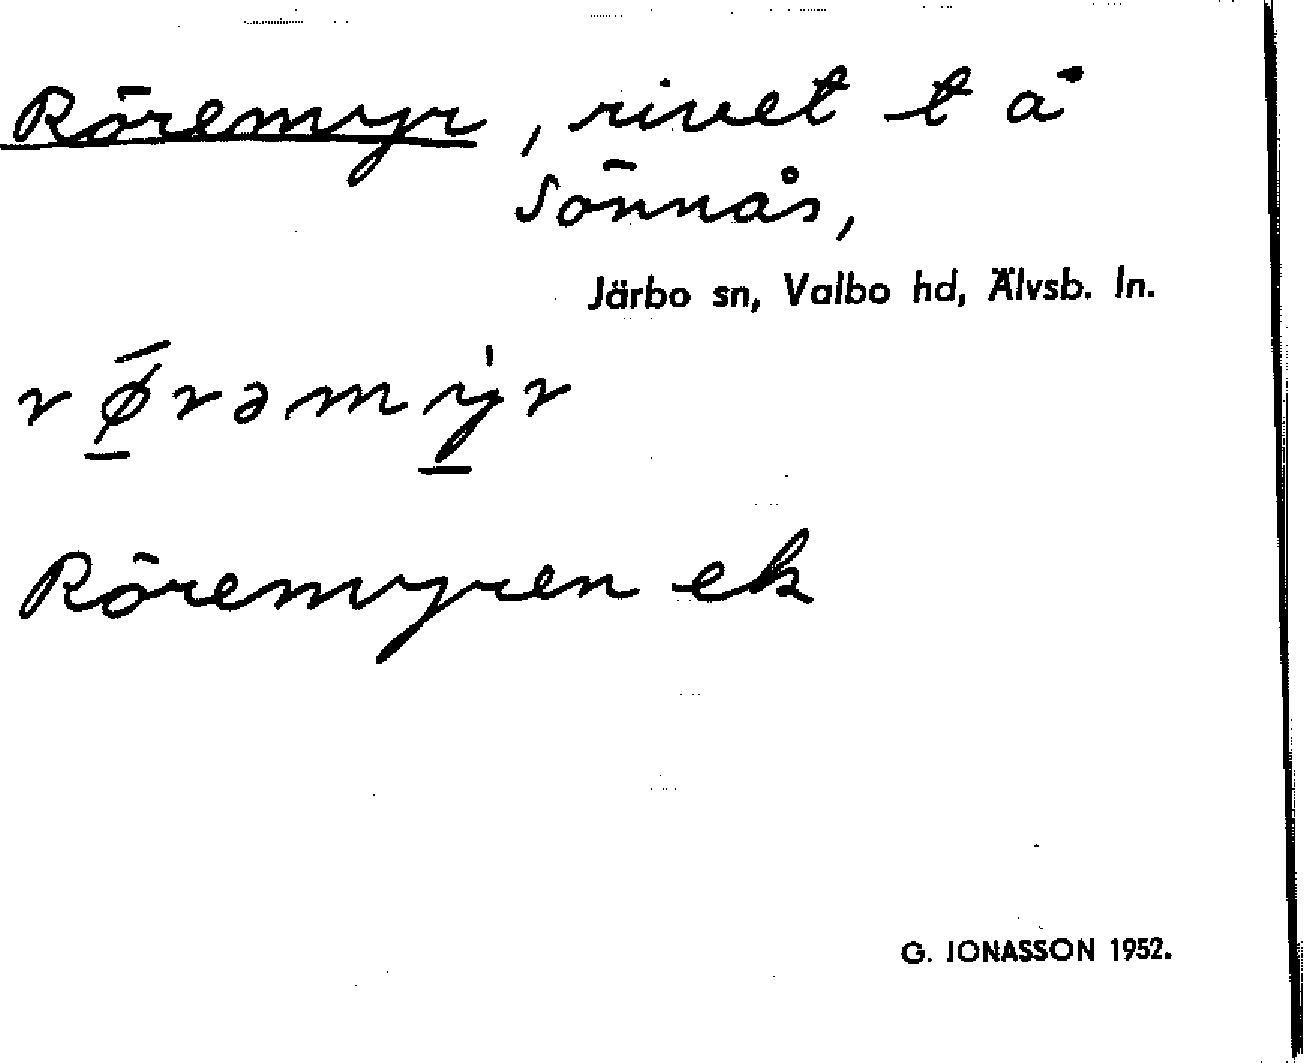 Röremyr, rivet t å
Sönnås,
Järbo sn, Valbo hd, Älvsb. ln.
rǿ̱rəmy̱̍r
Röremyren ek
G. JONASSON 1952.